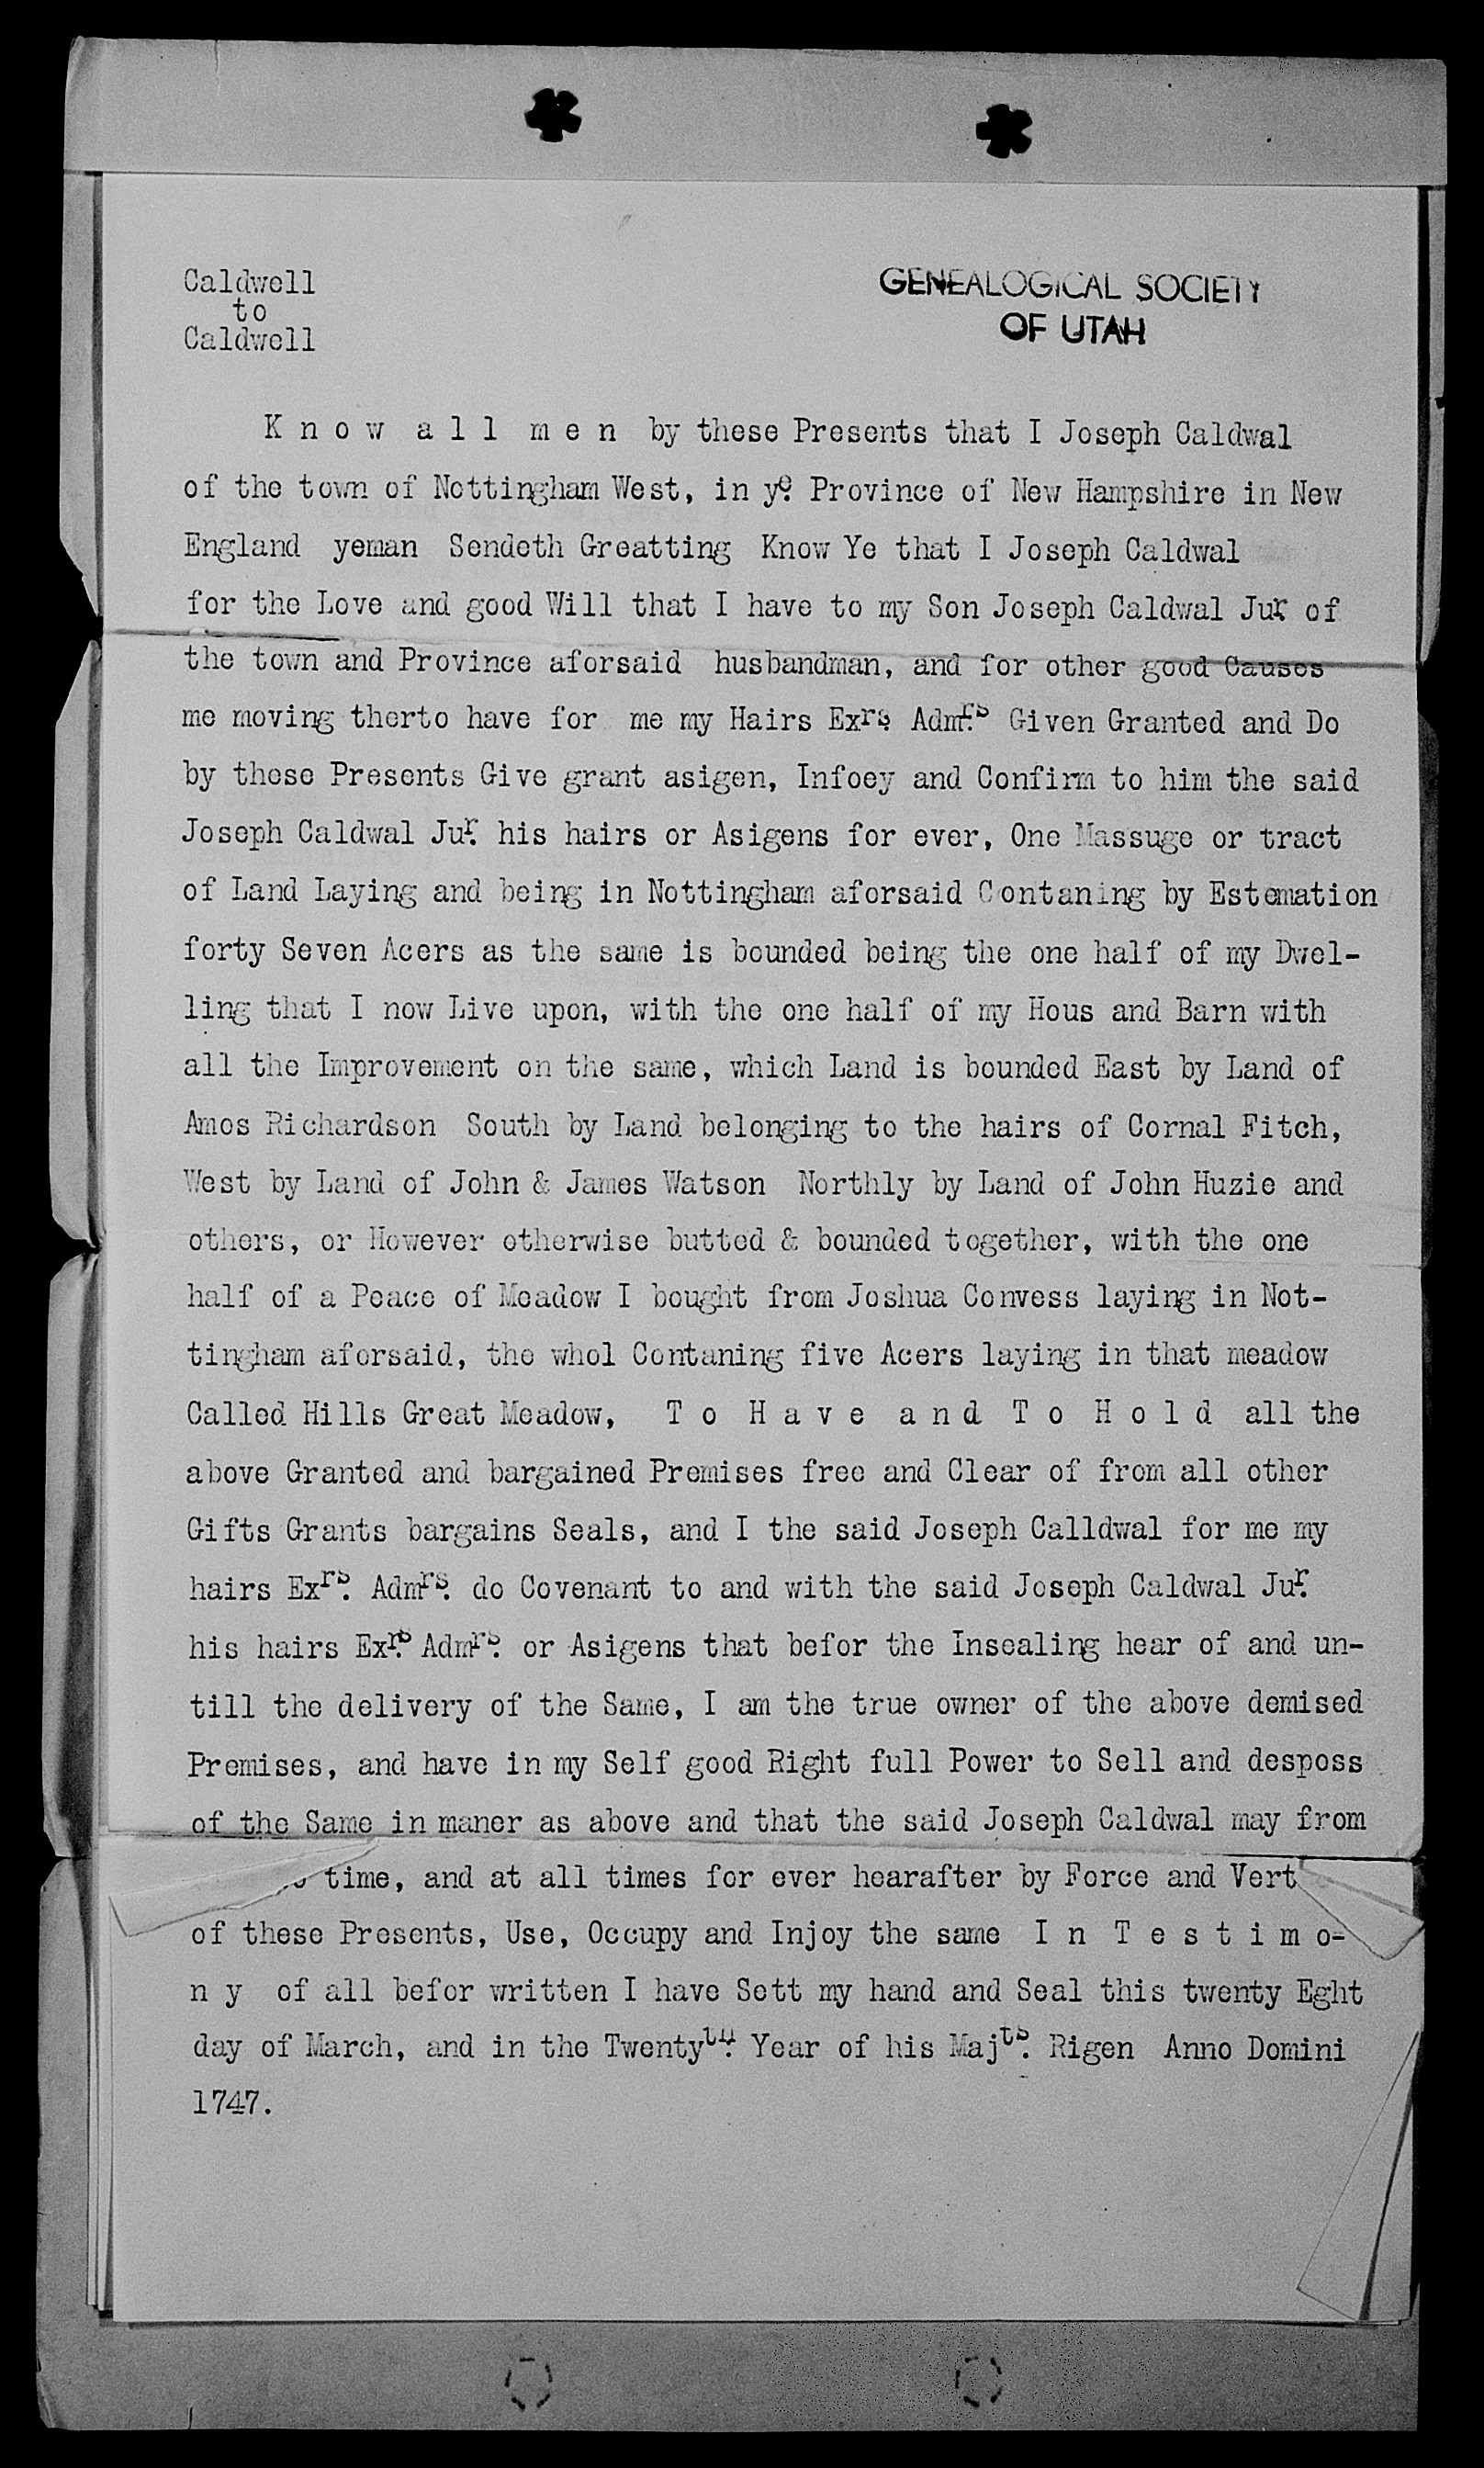 Caldwell
to
Caldwell
GENEALOGICAL SOCIETY
OF UTAH
K n o w a l l m e n by these Presents that I Joseph Caldwal
of the town of Nottingham West, in ye. Province of New Hampshire in New
England yeman Sendeth Greatting Know Ye that I Joseph Caldwal
for the Love and good Will that I have to my Son Joseph Caldwal Jur. of
the town and Province aforsaid husbandman, and for other good Causes
me moving therto have for me my Hairs Exrs. Admrs. Given Granted and Do
by these Presents Give grant asigen, Infoey and Confirm to him the said
Joseph Caldwal Jur. his hairs or Asigens for ever, One Massuge or tract
of Land Laying and being in Nottingham aforsaid Contaning by Estemation
forty Seven Acers as the same is bounded being the one half of my Dwel-
ling that I now Live upon, with the one half of my Hous and Barn with
all the Improvement on the same, which Land is bounded East by Land of
Amos Richardson South by Land belonging to the hairs of Cornal Fitch,
West by Land of John & James Watson Northly by Land of John Huzie and
others, or However otherwise butted & bounded together, with the one
half of a Peace of Meadow I bought from Joshua Convess laying in Not-
tingham aforsaid, the whol Contaning five Acers laying in that meadow
Called Hills Great Meadow, T o H a v e a n d T o H o l d all the
above Granted and bargained Premises free and Clear of from all other
Gifts Grants bargains Seals, and I the said Joseph Calldwal for me my
hairs Exrs. Admrs. do Covenant to and with the said Joseph Caldwal Jur.
his hairs Exrs. Admrs. or Asigens that befor the Insealing hear of and un-
till the delivery of the Same, I am the true owner of the above demised
Premises, and have in my Self good Right full Power to Sell and desposs
of the Same in maner as above and that the said Joseph Caldwal may from
time, and at all times for ever hearafter by Force and Vert
of these Presents, Use, Occupy and Injoy the same I n T e s t i m o-
n y of all befor written I have Sett my hand and Seal this twenty Eght
day of March, and in the Twentyth. Year of his Majts. Rigen Anno Domini
1747.